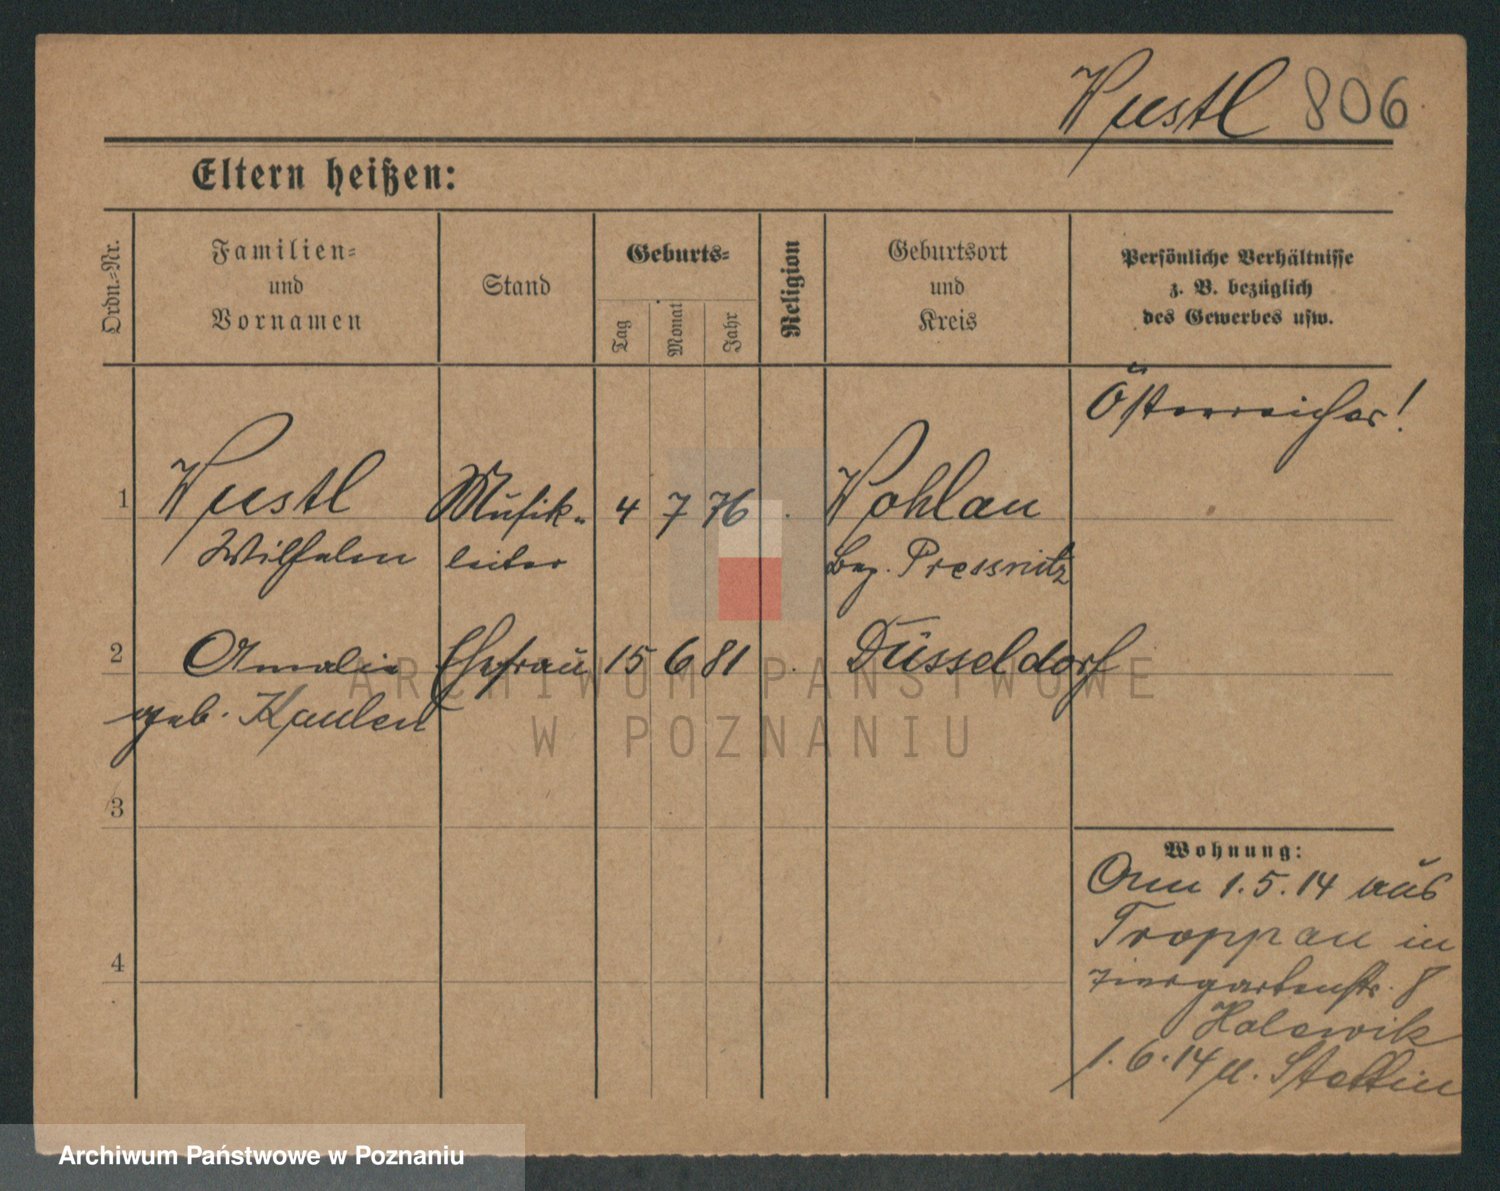 Wustl 806
Eltern heißen:
Ordn.-Nr.
Familien-
und
Vornamen
Stand
Geburts-
Tag
Monat
Jahr
Religion
Geburtsort
und
Kreis
Persönliche Verhältnisse
z. B. bezüglich
des Gewerbes usw.
Österreicher!
1 Wustl Musik- 4 7 76 Wohlau
Wilhelm leiter Bez. Pressnitz
2 Amalie Ehefrau 15 6 81 Düsseldorf
geb. Kaulen
3
4
Wohnung:
Am 1.5.14 aus
Troppau in
Tiergartenstr. 8
1.6.14 n. Stettin
ARCHIWUM PAŃSTWOWE
W POZNANIU
Archiwum Państwowe w Poznaniu